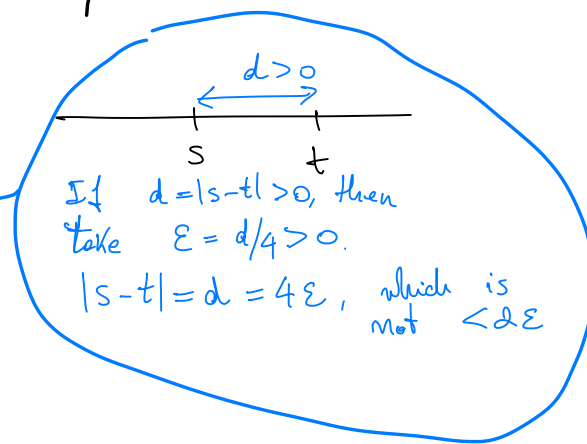 d>0
s t
If d=|s-t|>0, then
take ε = d/4>0.
|s-t|=d=4ε, which is
not <2ε